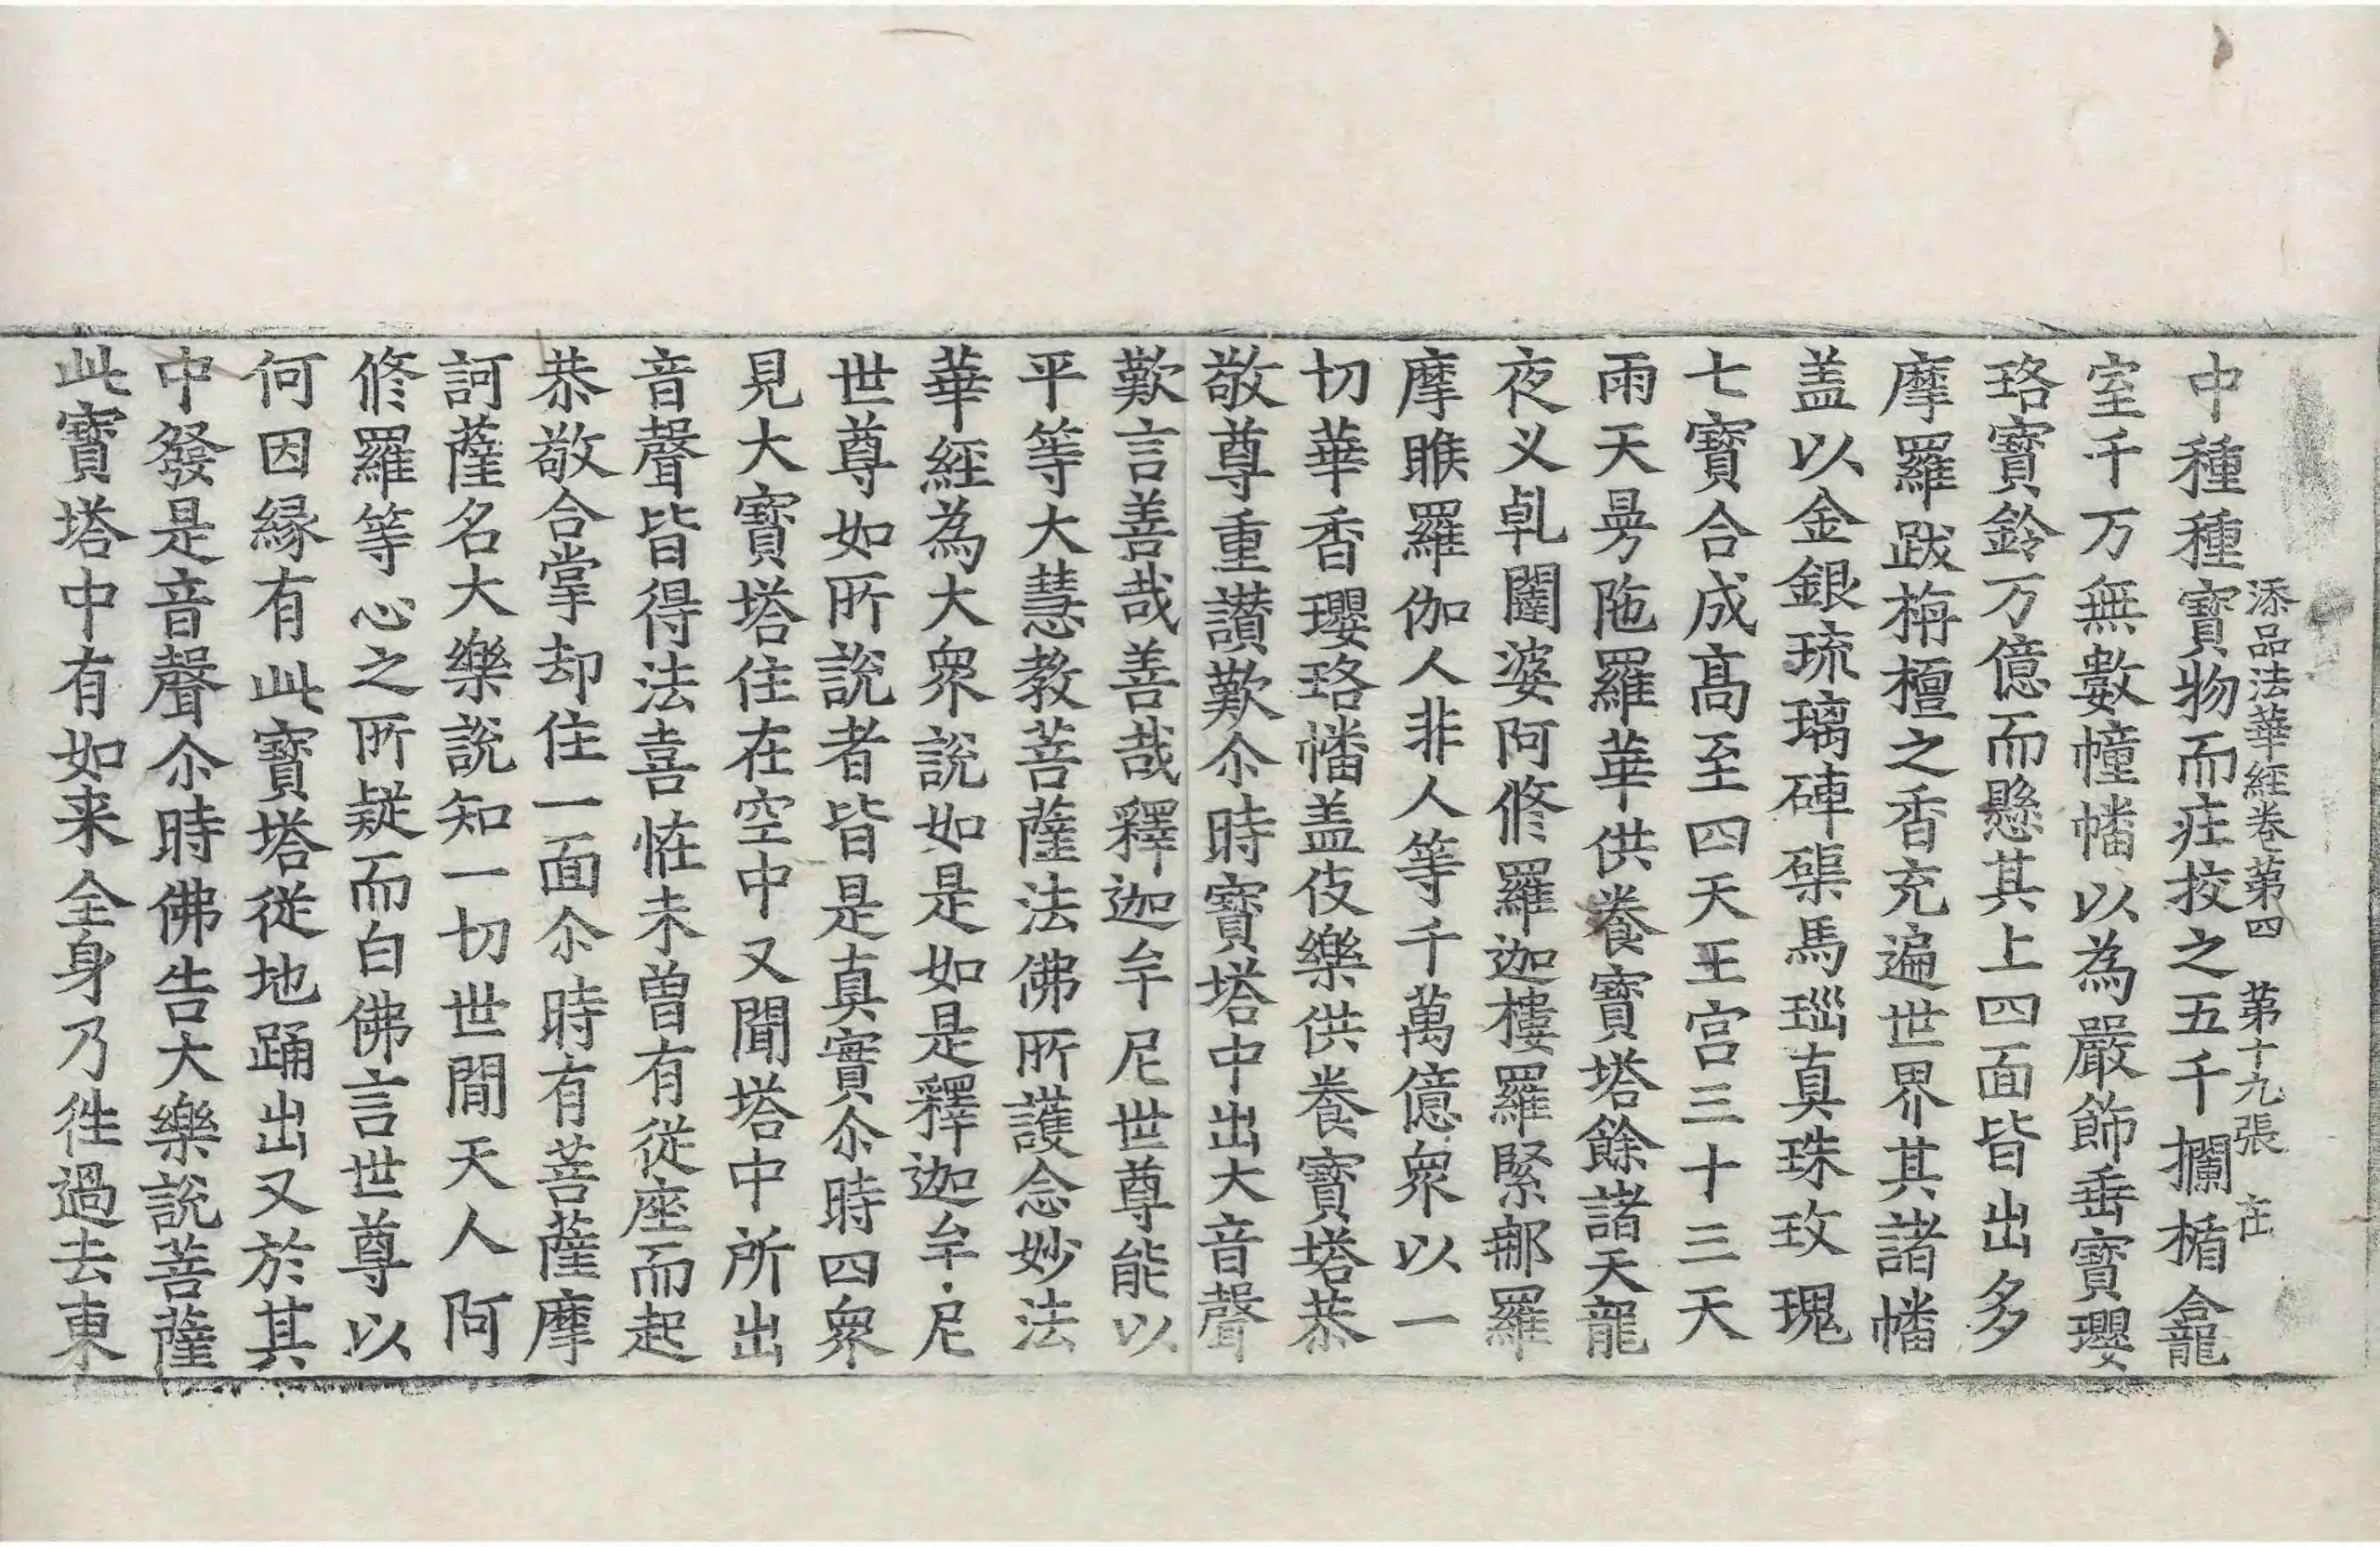 添品法華經卷第四　第十九張　在
中種種寶物而莊挍之五千攔楯龕
室千万無數幢幡以為嚴飾垂寶瓔
珞寶鈴万億而懸其上四面皆出多
摩羅跋栴檀之香充遍世界其諸幡
盖以金銀琉璃硨磲馬瑙真珠玫瑰
七寶合成髙至四天王宫三十三天
雨天曼陁羅華供養寶塔餘諸天龍
夜义乹闥婆阿脩羅迦樓羅緊那羅
摩睺羅伽人非人等千萬億衆以一
切華香瓔珞幡盖伎樂供養寶塔恭
敬尊重讃歎尒時寶塔中出大音聲
歎言善哉善哉釋迦牟尼世尊能以
平等大慧教菩薩法佛所護念妙法
華經為大衆說如是如是釋迦牟尼
世尊如所說者皆是真實尒時四衆
見大寶塔住在空中又聞塔中所出
音聲皆得法喜恠未曽有從座而起
恭敬合掌却住一面尒時有菩薩摩
訶薩名大樂說知一切世間天人阿
脩羅等心之所疑而白佛言世尊以
何因縁有此寶塔從地踊出又於其
中發是音聲尒時佛告大樂說菩薩
此寶塔中有如来全身乃徃過去東